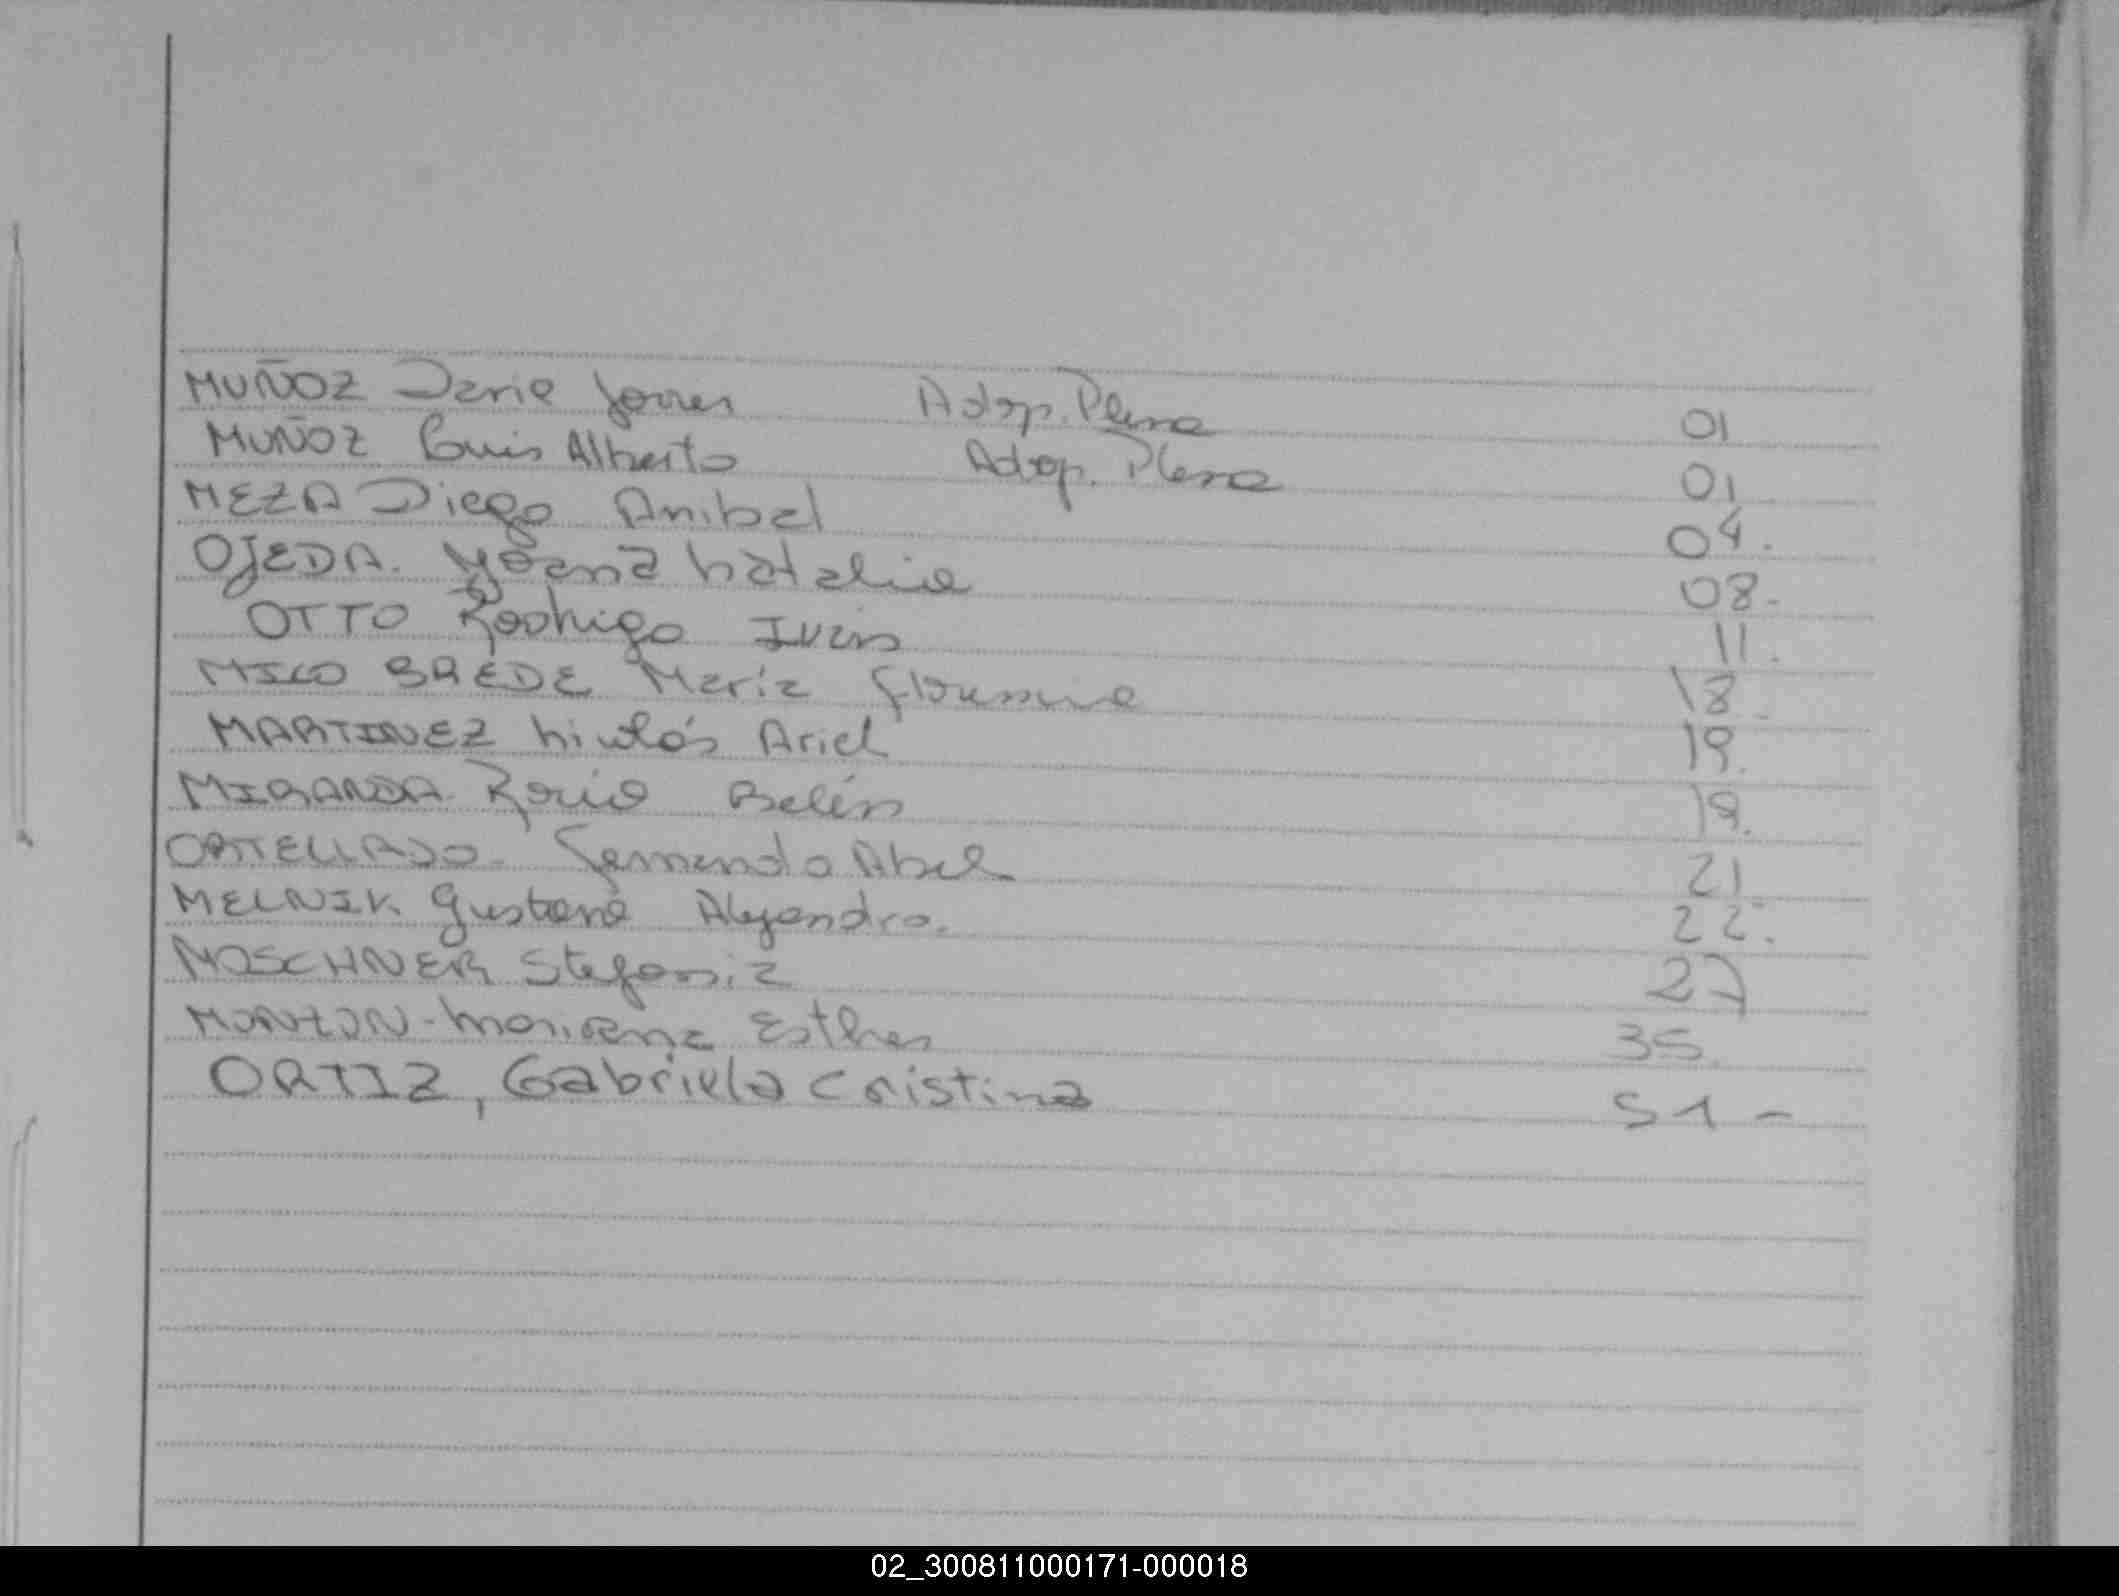 MUÑOZ Adop. Plena 01
MUÑOZ Luis Alberto Adop. Plena 01
MEZA Diego Anibal 04.
OJEDA. Yoana Natalia 08.
OTTO Rodrigo Iván 11.
María 18.
MARTINEZ Nicolás Ariel 19.
MIRANDA. Rocio Belén 19.
ORTELLADO. Fernando Abel 21.
MELNIK. Gustavo Alejandro. 22.
MOSCHNER Stefania 27
MONZON - Mariana Esther 35.
ORTIZ, Gabriela Cristina 51 -
02_300811000171-000018